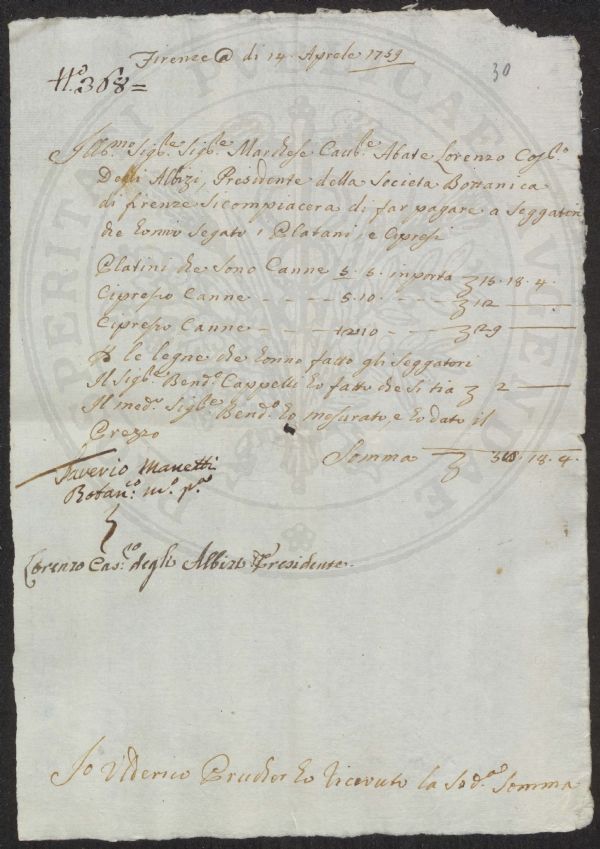 Firenze @ di 14. Aprele 1759
30
N.º 368=
Ill.mo Sig.e Sig.e Marchese Caub.e Abate Lorenzo
Delli Albizi, Presidente della Societa Bottanica
di firenze si compiacera di far pagare a Seggatori
che honno Segato i Platani, e Cipresi
Platini che sono Canne 5. 6. inporta 15. 18. 4.
Cipresso Canne - - - - 5. 10. - - - 12
Cipresso Canne - - - 12 10 - - - 29
le legne che honno fatto gli Seggatori
Il Sig.e Bend.o Cappelli ho fatto che si tia 2
Il med.o Sig.e Bend.o ho mesurato, e ho dato il
Prezzo
Somma 18. 4.
Saverio Manetti
Botan.co m.o p.a
Lorenzo Cas.co degli Albizi Presidente
Io Uderico Prucher ho ricevuto la Sod.a Somma